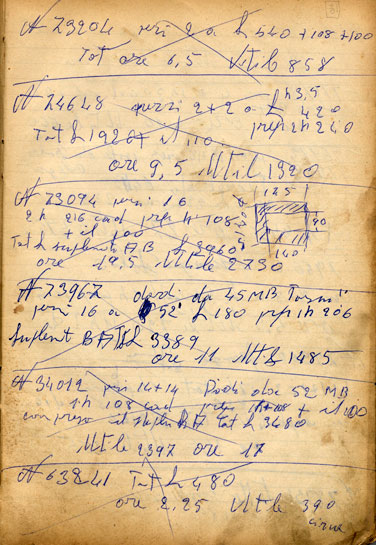 A 73204 pezzi 2 a £ 540 + 108 + 100
Tot ore 6,5 Utile 858
A 74648 pezzi 2+2 a £ 420
h 3,5
Tot £ 1920 + il 110 prep 2h 240
ore 9,5 Utile 1920
A 73094 pezzi 16
2h 216 cad prep h 108
+ il 100
Tot £ suplent A B £ 3960
ore 19,5 Utile 2730
125
90
140
A 73967 dadi da 45 MB
pezzi 16 a 52" £ 180 prep 2h 206
suplent B A Tot £ 3389
ore 11 Utile 1485
A 34012 pezzi 14+14 Dadi da 52 MB
1h 108 cad prep 1h 108 + il 100
compreso il suplent A Tot £ 3480
Utile 2397 ore 17
A 63841 Tot £ 480
ore 2,25 Utile 390